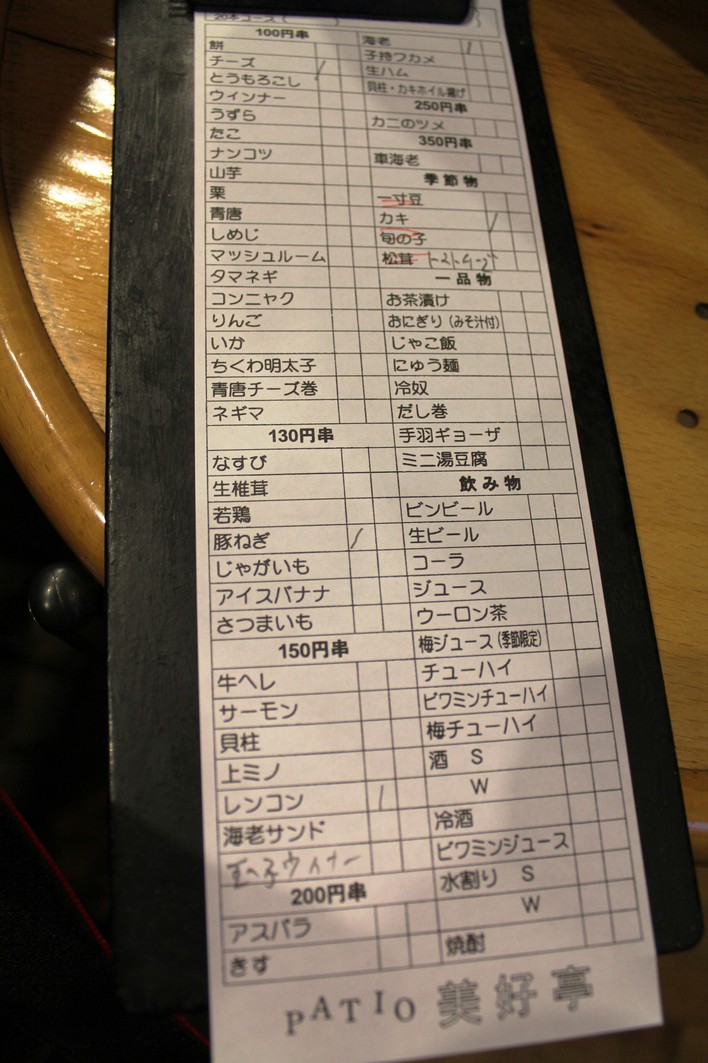 20本コース(
100円串
餅
チーズ
とうもろこし
ウィンナー
うずら
たこ
ナンコツ
山芋
栗
青唐
しめじ
マッシュルーム
タマネギ
コンニャク
りんご
いか
ちくわ明太子
青唐チーズ巻
ネギマ
130円串
なすび
生椎茸
若鶏
豚ねぎ
じゃがいも
アイスバナナ
さつまいも
150円串
牛ヘレ
サーモン
貝柱
上ミノ
レンコン
海老サンド
ウィナー
200円串
アスパラ
きす
海老
子持ワカメ
生ハム
貝柱・カキホイル揚げ
250円串
カニのツメ
350円串
車海老
季節物
一寸豆
カキ
旬の子
松茸
一品物
お茶漬け
おにぎり(みそ汁付)
じゃこ飯
にゅう麺
冷奴
だし巻
手羽ギョーザ
ミニ湯豆腐
飲み物
ビンビール
生ビール
コーラ
ジュース
ウーロン茶
梅ジュース(季節限定)
チューハイ
ビワミンチューハイ
梅チューハイ
酒 S
W
冷酒
ビワミンジュース
水割り S
W
焼酎
PATIO 美好亭